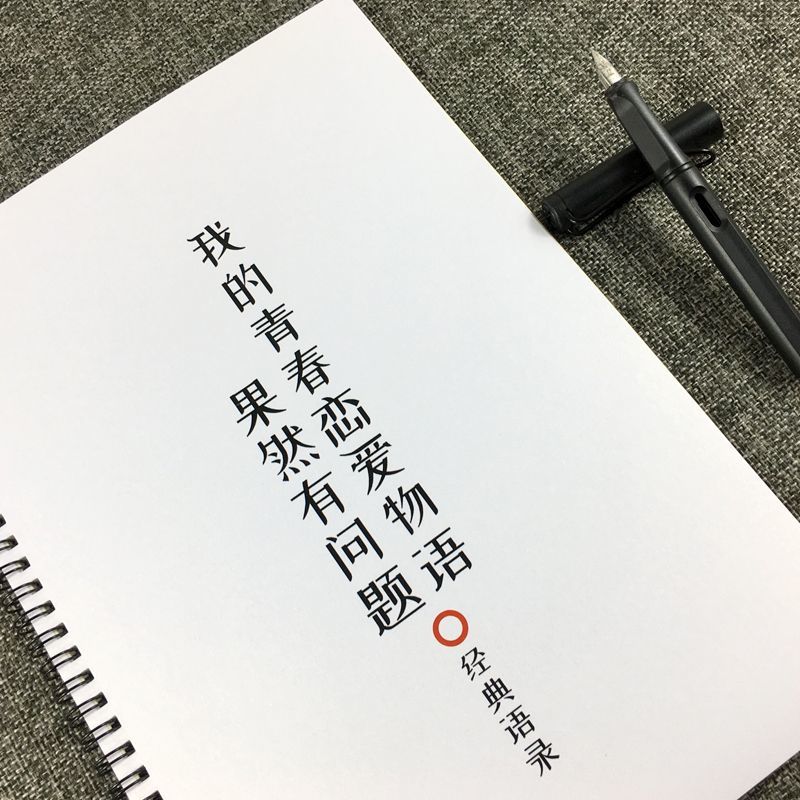 我的青春恋爱物语
果然有问题
经典语录